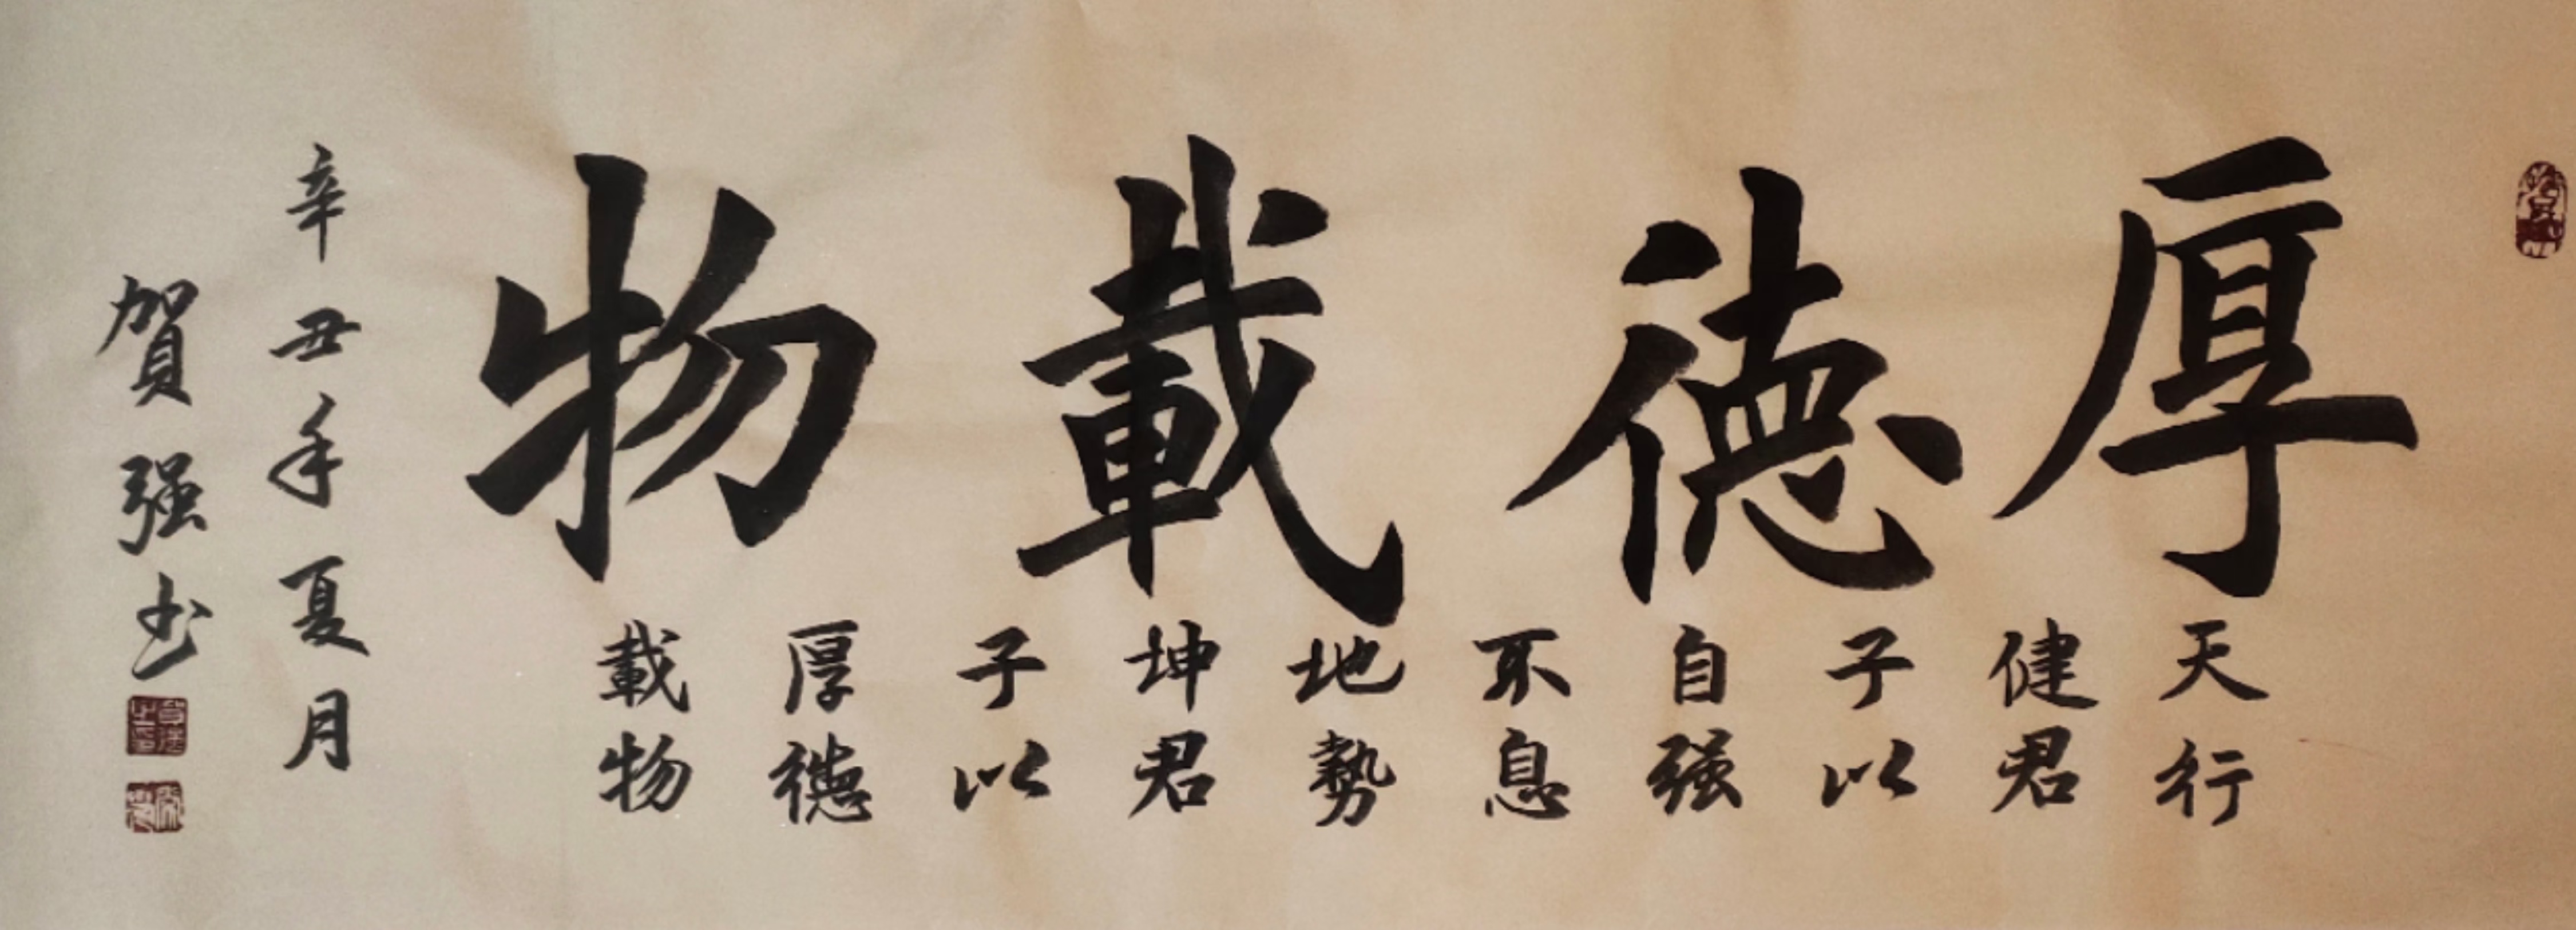 厚德載物
天行
健君
子以
自强
不息
地勢
坤君
子以
厚德
載物
辛丑年夏月
賀强书